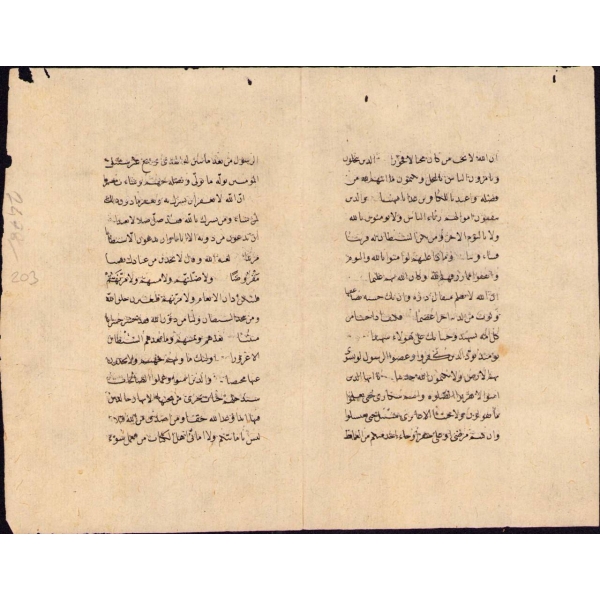 ان الله لا يحب من كان مختالا فخورا الذين يبخلون
ويامرون الناس بالبخل ويكتمون ما اتيهم الله من
فضله واعتدنا للكافرين عذابا مهينا والذين
ينفقون اموالهم رئاء الناس ولا يومنون بالله
ولا باليوم الاخر ومن يكن الشيطان له قرينا
فساء قرينا وماذا عليهم لو امنوا بالله واليوم
وانفقوا مما رزقهم الله وكان الله بهم عليما
ان الله لا يظلم مثقال ذرة وان تك حسنة يضاعفها
ويوت من لدنه اجرا عظيما فكيف اذا جئنا من
كل امة بشهيد وجئنا بك على هؤلاء شهيدا
يومئذ يود الذين كفروا وعصوا الرسول لو تسوى
بهم الارض ولا يكتمون الله حديثا يا ايها الذين
امنوا لا تقربوا الصلوة وانتم سكارى حتى تعلموا
ما تقولون ولا جنبا الا عابرى سبيل حتى تغتسلوا
وان كنتم مرضى او على سفر او جاء احد منكم من الغائط
الرسول من بعد ما تبين له الهدى ويتبع غير سبيل
المومنين نوله ما تولى ونصله جهنم وساءت مصيرا
ان الله لا يغفر ان يشرك به ويغفر ما دون ذلك
لمن يشاء ومن يشرك بالله فقد ضل ضلالا بعيدا
ان يدعون من دونه الا اناثا وان يدعون الا شيطانا
مريدا لعنه الله وقال لاتخذن من عبادك نصيبا
مفروضا ولاضلنهم ولامنينهم ولامرنهم
فليبتكن اذان الانعام ولامرنهم فليغيرن خلق الله
ومن يتخذ الشيطان وليا من دون الله فقد خسر خسرانا
مبينا يعدهم ويمنيهم وما يعدهم الشيطان
الا غرورا اولئك ماويهم جهنم ولا يجدون
عنها محيصا والذين امنوا وعملوا الصالحات
سندخلهم جنات تجرى من تحتها الانهار خالدين
فيها ابدا وعد الله حقا ومن اصدق من الله قيلا
ليس بامانيكم ولا امانى اهل الكتاب من يعمل سوءا
203